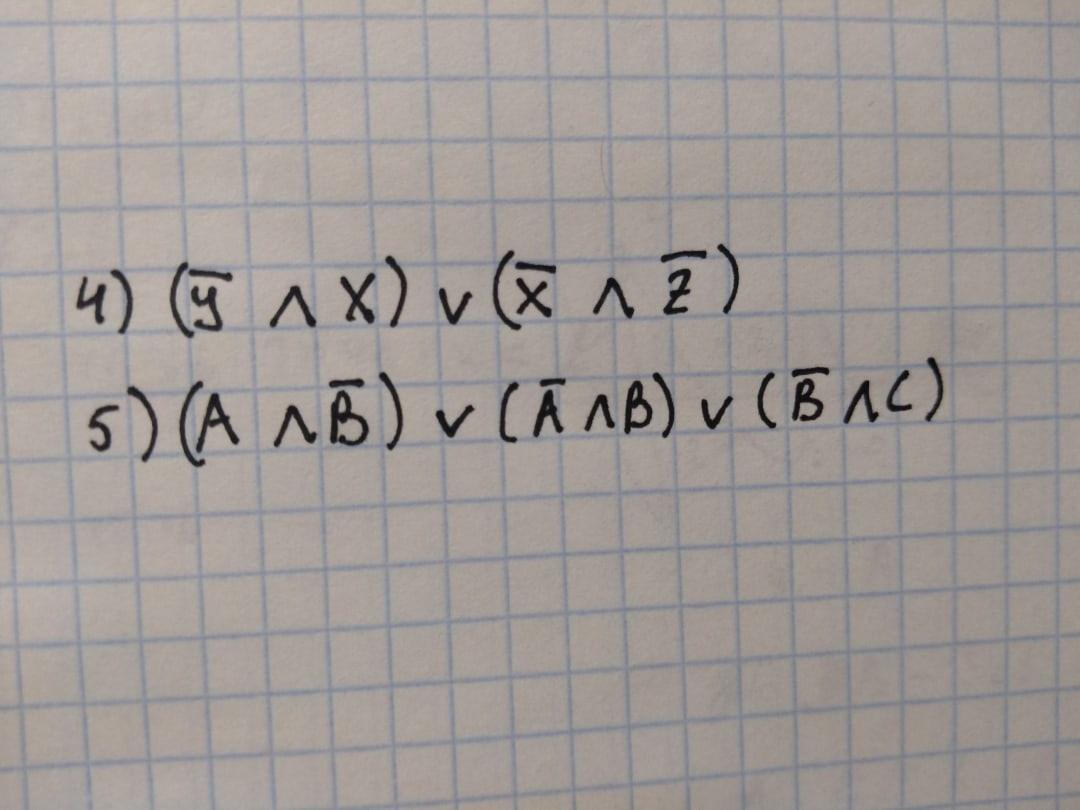 4) (y̅ ∧ X) ∨ (x̅ ∧ z̅)
5) (A ∧ B̅) ∨ (A̅ ∧ B) ∨ (B̅ ∧ C)